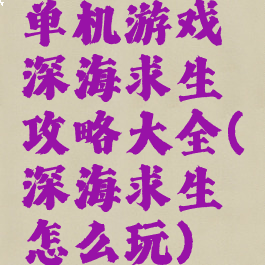 单机游戏
深海求生
攻略大全(
深海求生
怎么玩)